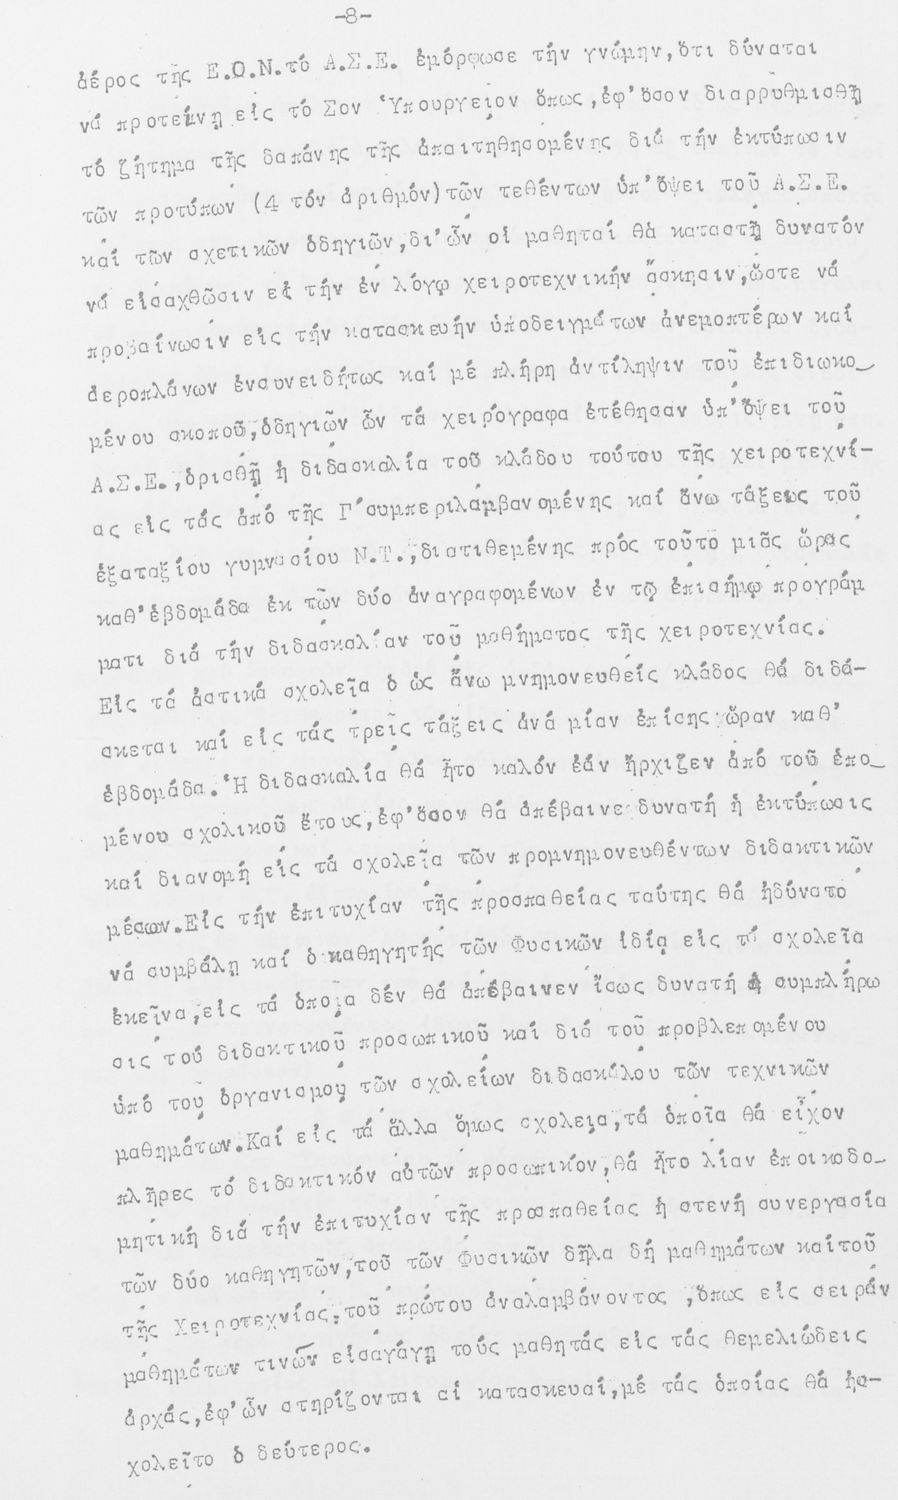 -8-
ἀέρος τῆς Ε.Ο.Ν.τό Α.Σ.Ε. ἐμόρφωσε τήν γνώμην,ὅτι δύναται
νά προτείνῃ εἰς τό Σον Ὑπουργεῖον ὅπως,ἐφ'ὅσον διαρρυθμισθῇ
τό ζήτημα τῆς δαπάνης τῆς ἀπαιτηθησομένης διά τήν ἐκτύπωσιν
τῶν προτύπων (4 τόν ἀριθμόν)τῶν τεθέντων ὑπ'ὄψει τοῦ Α.Σ.Ε.
καί τῶν σχετικῶν ὁδηγιῶν,δι'ὧν οἱ μαθηταί θά καταστῇ δυνατόν
νά εἰσαχθῶσιν εἰ τήν ἐν λόγῳ χειροτεχνικήν ἄσκησιν,ὥστε νά
προβαίνωσιν εἰς τήν κατασκευήν ὑποδειγμάτων ἀνεμοπτέρων καί
ἀεροπλάνων ἐνσυνειδήτως καί μέ πλήρη ἀντίληψιν τοῦ ἐπιδιωκο_
μένου σκοποῦ,ὁδηγιῶν ὧν τά χειρόγραφα ἐτέθησαν ὑπ'ὄψει τοῦ
Α.Σ.Ε.,ὁρισθῇ ἡ διδασκαλία τοῦ κλάδου τούτου τῆς χειροτεχνί-
ας εἰς τάς ἀπό τῆς Γ'συμπεριλαμβανομένης καί ἄνω τάξεως τοῦ
ἑξαταξίου γυμνασίου Ν.Τ.,διατιθεμένης πρός τοῦτο μιᾶς ὥρας
καθ'ἑβδομάδα ἐκ τῶν δύο ἀναγραφομένων ἐν τῷ ἐπισήμῳ προγράμ
ματι διά τήν διδασκαλίαν τοῦ μαθήματος τῆς χειροτεχνίας.
Εἰς τά ἀστικά σχολεῖα ὁ ὡς ἄνω μνημονευθείς κλάδος θά διδά-
σκεται καί εἰς τάς τρεῖς τάξεις ἀνά μίαν ἐπίσης ὥραν καθ'
ἑβδομάδα.Ἡ διδασκαλία θά ἦτο καλόν ἐάν ἤρχιζεν ἀπό τοῦ ἑπο_
μένου σχολικοῦ ἔτους,ἐφ'ὅσον θά ἀπέβαινε δυνατή ἡ ἐκτύπωσις
καί διανομή εἰς τά σχολεῖα τῶν προμνημονευθέντων διδακτικῶν
μέσων.Εἰς τήν ἐπιτυχίαν τῆς προσπαθείας ταύτης θά ἠδύνατο
νά συμβάλῃ καί ὁ καθηγητής τῶν Φυσικῶν ἰδίᾳ εἰς τά σχολεῖα
ἐκεῖνα,εἰς τά ὁποῖα δέν θά ἀπέβαινεν ἴσως δυνατή ἡ συμπλήρω
σις τοῦ διδακτικοῦ προσωπικοῦ καί διά τοῦ προβλεπομένου
ὑπό τοῦ ὀργανισμοῦ τῶν σχολείων διδασκάλου τῶν τεχνικῶν
μαθημάτων.Καί εἰς τά ἄλλα ὅμως σχολεῖα,τά ὁποῖα θά εἶχον
πλῆρες τό διδακτικόν αὐτῶν προσωπικόν,θά ἦτο λίαν ἐποικοδο_
μητική διά τήν ἐπιτυχίαν τῆς προσπαθείας ἡ στενή συνεργασία
τῶν δύο καθηγητῶν,τοῦ τῶν Φυσικῶν δῆλα δή μαθημάτων καίτοῦ
τῆς Χειροτεχνίας,τοῦ πρώτου ἀναλαμβάνοντος ,ὅπως εἰς σειράν
μαθημάτων τινῶν εἰσαγάγῃ τούς μαθητάς εἰς τάς θεμελιώδεις
ἀρχάς,ἐφ'ὧν στηρίζονται αἱ κατασκευαί,μέ τάς ὁποίας θά ἠσ-
χολεῖτο ὁ δεύτερος.